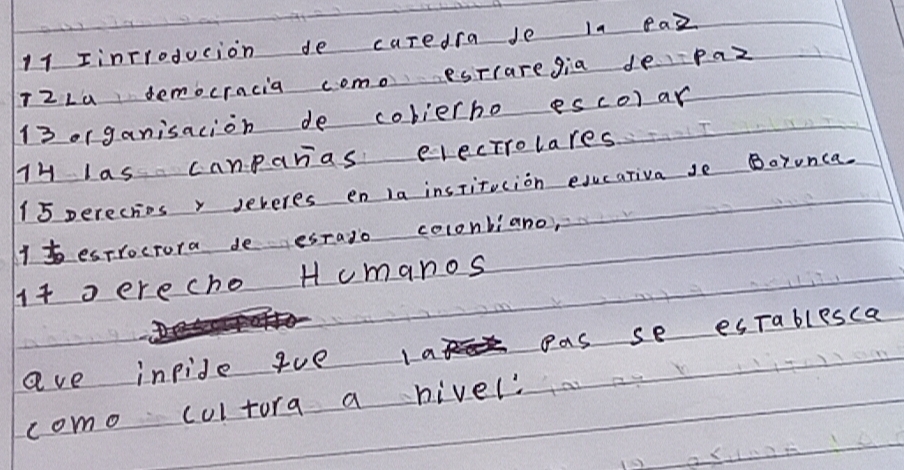 11 Iintrodución de catedra de la paz
12 La democracia como estraregia de paz
13 organisación de cobierno escolar
14 las canpañas electrolares
15 Derechos y deberes en la institución educativa de Bayunca.
16 estroctora de estado colonbiano,
17 Derecho Humanos
que inpide que la pas se establesca
como cultura a nivel: